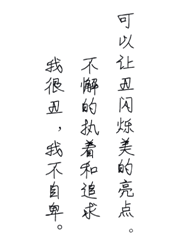 可以让丑闪烁美的亮点。
不懈的执着和追求
我很丑，我不自卑。